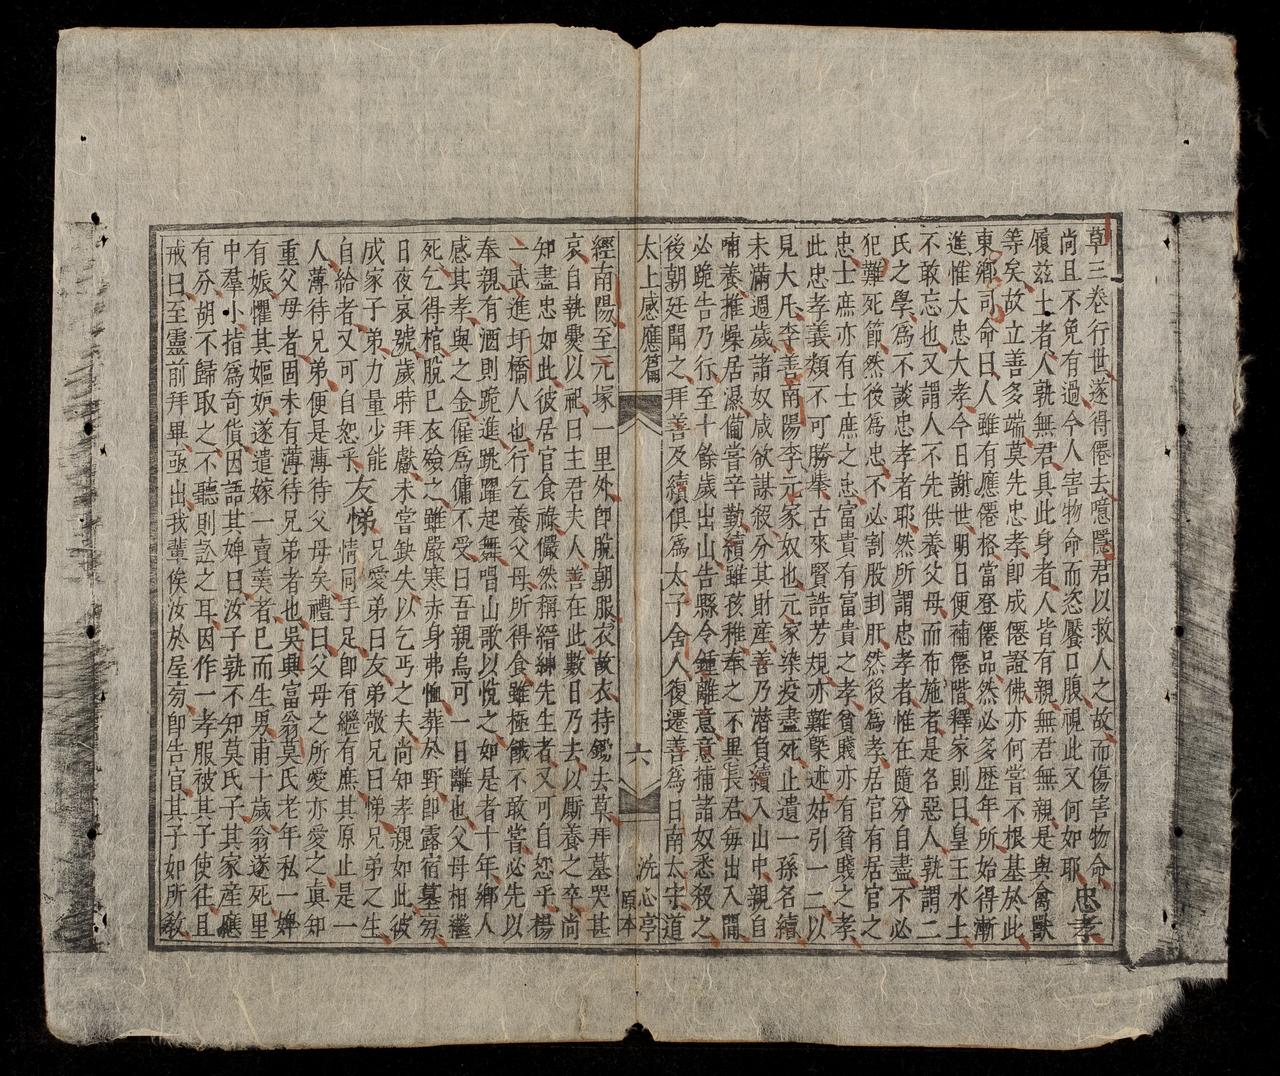 草三卷行世遂得僊去噫隱君以救人之故而傷害物命
尚且不免有過今人害物命而恣饜口腹視此又何如耶忠孝
履茲土者人孰無君具此身者人皆有親無君無親是與禽獸
等矣故立善多端莫先忠孝即成僊證佛亦何嘗不根基於此
東鄉司命曰人雖有應僊格當登僊品然必多歷年所始得漸
進惟大忠大孝今日謝世明日便補僊階釋家則曰皇王水土
不敢忘也又謂人不先供養父母而布施者是名惡人孰謂二
氏之學為不談忠孝者耶然所謂忠孝者惟在隨分自盡不必
犯難死節然後為忠不必割股封肝然後為孝居官有居官之
忠士庶亦有士庶之忠富貴有富貴之孝貧賤亦有貧賤之孝
此忠孝義類不可勝集古來賢誥芳規亦難槩述姑引一二以
見大凡李善南陽李元家奴也元家染疫盡死止遺一孫名續
未滿週歲諸奴咸欲謀殺分其財產善乃潛負續入山中親自
哺養推燥居濕備嘗辛勤續雖孩稚奉之不異長君每出入閒
必跪告乃行至十餘歲出山告縣令鍾離意意捕諸奴悉殺之
後朝廷聞之拜善及續俱為太子舍人復遷善為日南太守道
太上感應篇 六 洗心亭原本
經南陽至元塚一里外即脫朝服衣故衣持鋤去草拜墓哭甚
哀自執爨以祀曰主君夫人善在此數日乃去以廝養之卒尚
知盡忠如此彼居官食祿儼然稱縉紳先生者又可自恕乎楊
一武進圩橋人也行乞養父母所得食雖極餓不敢嘗必先以
奉親有酒則跪進跳躍起舞唱山歌以悅之如是者十年鄉人
感其孝與之金僱為傭不受曰吾親烏可一日離也父母相繼
死乞得棺脫已衣殮之雖嚴寒赤身弗恤葬於野即露宿墓旁
日夜哀號歲時拜獻未嘗缺失以乞丐之夫尚知孝親如此彼
成家子弟力量少能友悌兄愛弟曰友弟敬兄曰悌兄弟之生
自給者又可自恕乎情同手足即有繼有庶其原止是一
人薄待兄弟便是薄待父母矣禮曰父母之所愛亦愛之真知
重父母者固未有薄待兄弟者也吳興富翁莫氏老年私一婢
有娠懼其嫗妬遂遣嫁一賣羹者已而生男甫十歲翁遂死里
中羣小指為奇貨因語其婢曰汝子孰不知莫氏子其家產應
有分胡不歸取之不聽則訟之耳因作一孝服被其子使往且
戒曰至靈前拜畢亟出我輩俟汝於屋旁即告官其子如所教